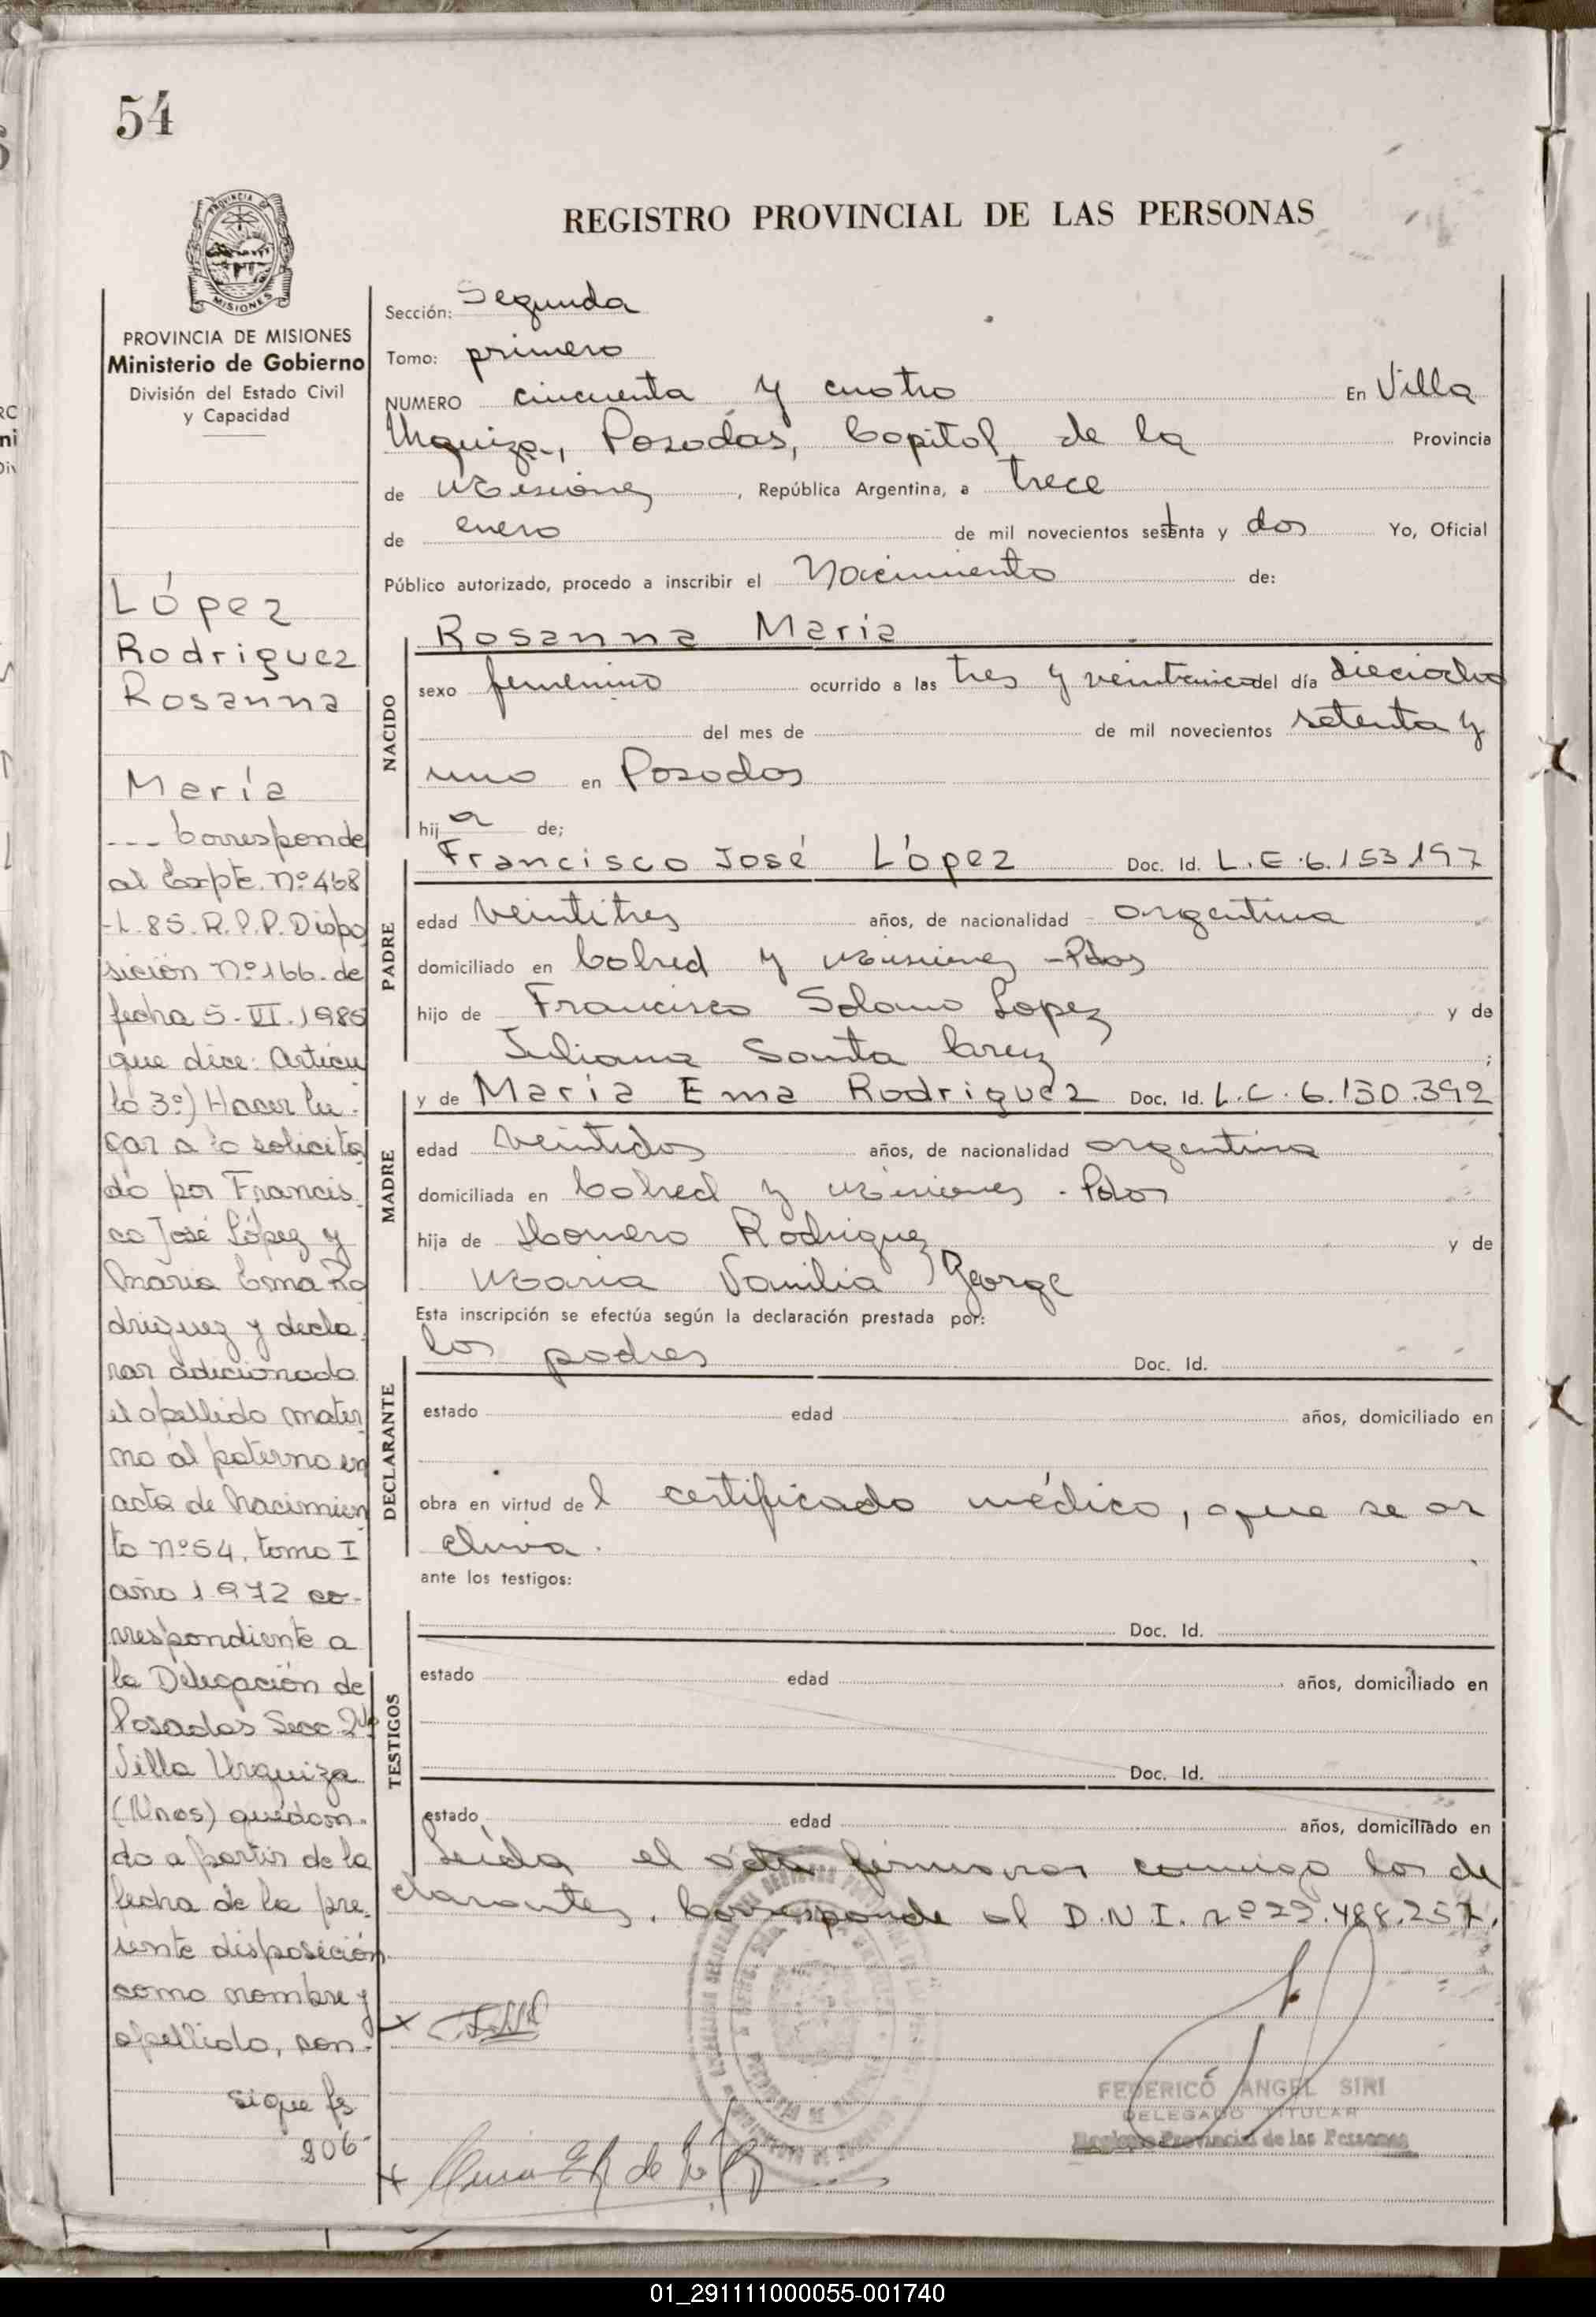 54
REGISTRO PROVINCIAL DE LAS PERSONAS
MISIONES
PROVINCIA DE MISIONES
Ministerio de Gobierno
División del Estado Civil
y Capacidad
López
Rodriguez
Rosanna
María
--- Corresponde
al Expte. Nº 468
-L.85.R.P.P. Dispo
sición Nº 166. de
fecha 5-VI.1985
que dice: Articu
lo 3º) Hacer lu-
gar a lo solicita
do por Francis
co José López y
María Ema Ro
driguez y decla
rar adicionado
el apellido mater
no al paterno en
acta de Nacimien
to nº 54, tomo I
año 1972 co-
rrespondiente a
la Delegación de
Posadas Secc 2da
Villa Urquiza
(Mnes) quedan-
do a partir de la
fecha de la pre-
sente disposición
como nombre y
apellido, con-
sigue fs
206
Sección: Segunda
Tomo: primero
NUMERO cincuenta y cuatro En Villa
Urquiza, Posadas, Capital de la Provincia
de Misiones, República Argentina, a trece
de enero de mil novecientos setenta y dos Yo, Oficial
Público autorizado, procedo a inscribir el Nacimiento de:
NACIDO
Rosanna María
sexo femenino ocurrido a las tres y veinticinco del día dieciocho
del mes de de mil novecientos setenta y
uno en Posadas
hija de;
PADRE
Francisco José López Doc. Id. L.E.6.153.197
edad veintitres años, de nacionalidad argentina
domiciliado en Cabred y Misiones - Pdas
hijo de Francisco Solano Lopez y de
Juliana Santa Cruz;
MADRE
y de María Ema Rodriguez Doc. Id. L.C.6.130.392
edad veintidos años, de nacionalidad argentina
domiciliada en Cabred y Misiones - Pdas
hija de Homero Rodriguez y de
Maria George
Esta inscripción se efectúa según la declaración prestada por:
DECLARANTE
los padres Doc. Id.
estado edad años, domiciliado en
obra en virtud del certificado médico, que se ar
chiva.
ante los testigos:
TESTIGOS
Doc. Id.
estado edad años, domiciliado en
Doc. Id.
estado edad años, domiciliado en
Leída el acta firmaron conmigo los de
clarantes. Corresponde al D.N.I. nº 22.488.257.
FEDERICO ANGEL SIRI
DELEGADO TITULAR
Registro Provincial de las Personas
01_291111000055-001740